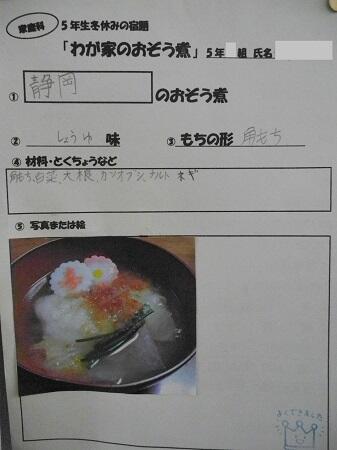 家庭科 5年生冬休みの宿題
「わが家のおぞう煮」 5年 組 氏名
① 静岡 のおぞう煮
② しょうゆ 味 ③ もちの形 角もち
④ 材料・とくちょうなど
角もち、白菜、大根、カツオブシ、ナルト ネギ
⑤ 写真または絵
よくできました